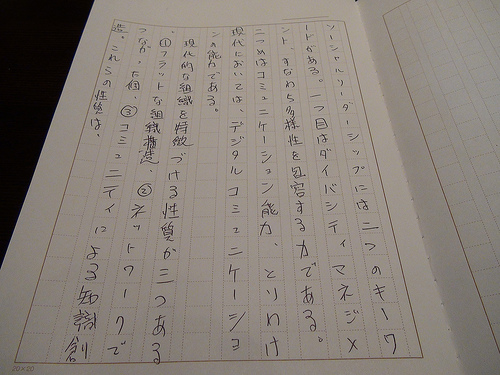 ソーシャルリーダーシップには二つのキーワ
ードがある。一つ目はダイバシティマネジメ
ント、すなわち多様性を包容する力である。
二つめはコミュニケーション能力、とりわけ
現代においては、デジタルコミュニケーショ
ンの能力である。
現代的な組織を特徴づける性質が三つある
①フラットな組織構造、②ネットワークで
つながった個③コミュニティによる知識創
造。これらの性質は、
20×20